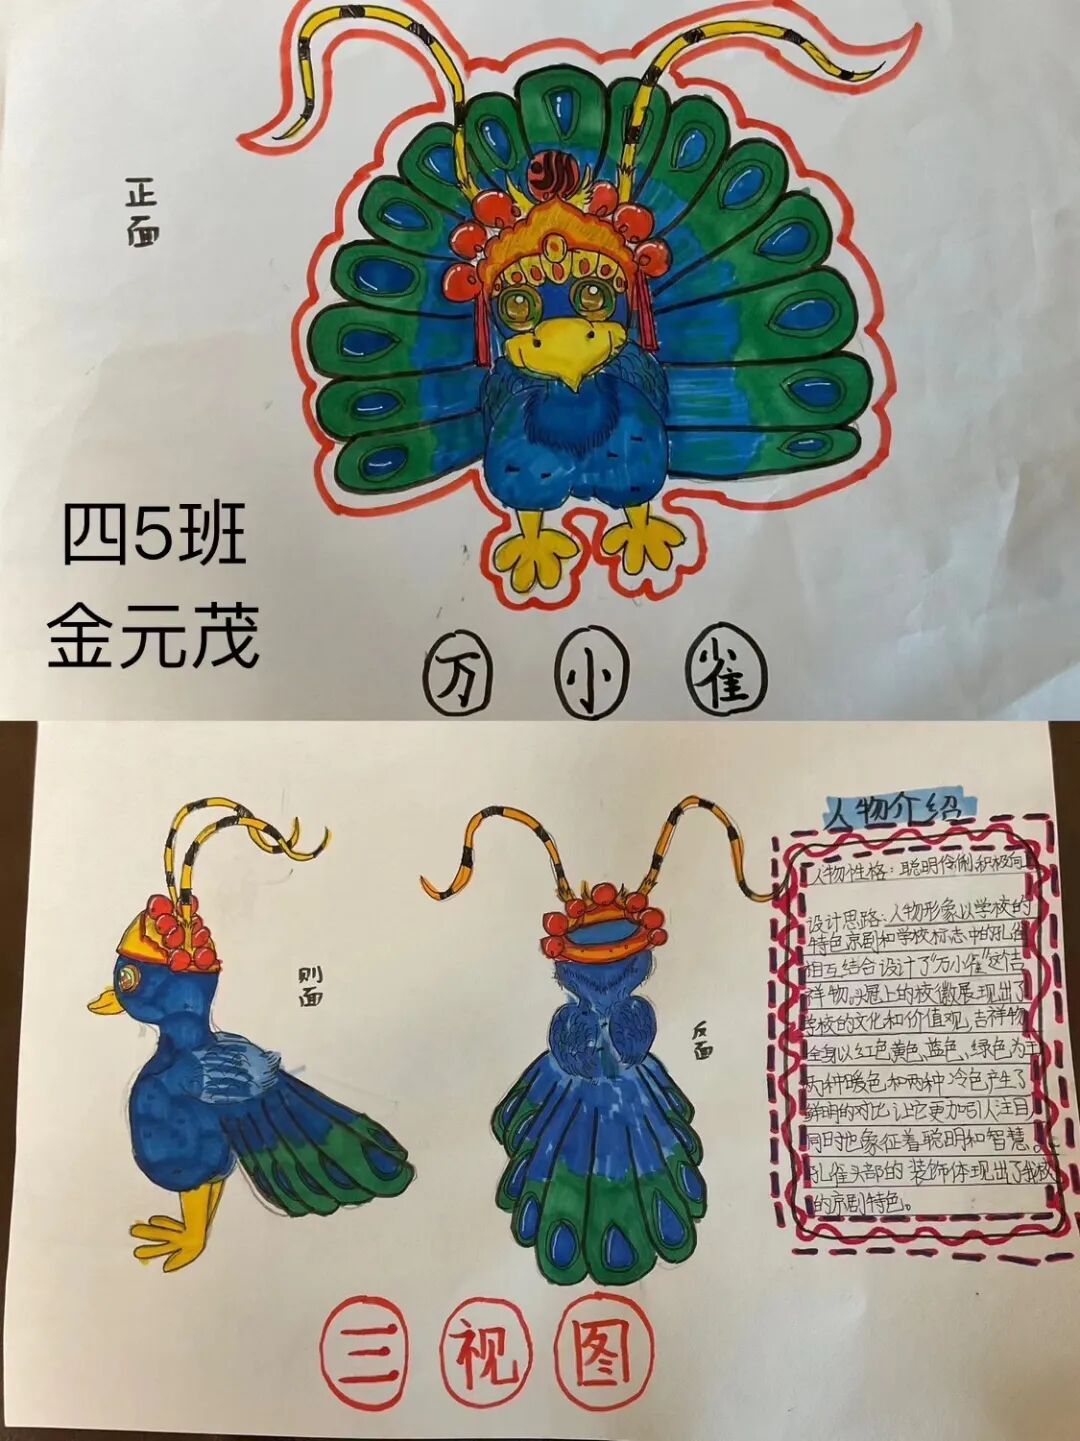 正
面
四5班
金元茂
万小雀
人物介绍
人物性格：聪明伶俐积极向上
设计思路：人物形象以学校的
特色京剧和学校标志中的孔雀
相互结合设计了“万小雀”这个吉
祥物。头冠上的校徽展现出了
学校的文化和价值观，吉祥物
全身以红色、黄色、蓝色、绿色为主
两种暖色和两种冷色产生了
鲜明的对比让它更加引人注目，
同时也象征着聪明和智慧。
孔雀头部的装饰体现出了我校
的京剧特色。
则
面
反
面
三视图